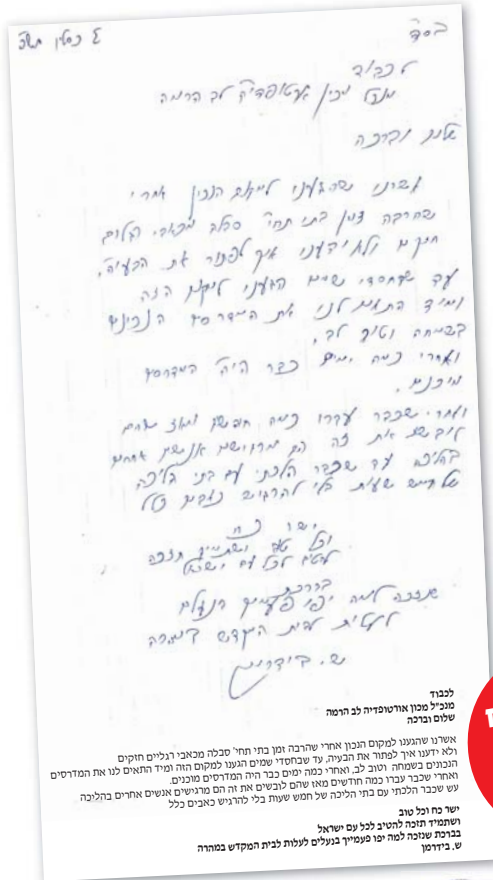 בס"ד
ג' כסלו תשפ"
לכבוד
מנכל מכון אורטופדיה לב הרמה
שלום וברכה
אשרנו שהגענו למקום הנכון אחרי
שהרבה זמן בתי תחי' סבלה מכאבי רגלים
חזקים ולא ידענו איך לפתור את הבעיה,
עד שבחסדי שמים הגענו למקום הזה
ומיד התאים לנו את המדרסים הנכונים
בשמחה וטוב לב,
ואחרי כמה ימים כבר היה המדרסים
מוכנים.
ואחרי שכבר עברו כמה חודשים ומאז שהם
לובשים את זה הם מרגישים אנשים אחרים
בהליכה עד שכבר הלכתי עם בתי הליכה
של חמש שעות בלי להרגיש כאבים כלל
ישר כח
וכל טוב ושתמיד תזכה
להטיב לכל עם ישראל
בברכת
שנזכה למה יפו פעמיך בנעלים
לעלות לבית המקדש במהרה
ש. בידרמן
לכבוד
מנכ"ל מכון אורטופדיה לב הרמה
שלום וברכה
אשרנו שהגענו למקום הנכון אחרי שהרבה זמן בתי תחי' סבלה מכאבי רגליים חזקים
ולא ידענו איך לפתור את הבעיה, עד שבחסדי שמים הגענו למקום הזה ומיד התאים לנו את המדרסים
הנכונים בשמחה וטוב לב, ואחרי כמה ימים כבר היה המדרסים מוכנים.
ואחרי שכבר עברו כמה חודשים מאז שהם לובשים את זה הם מרגישים אנשים אחרים בהליכה
עש שכבר הלכתי עם בתי הליכה של חמש שעות בלי להרגיש כאבים כלל
ישר כח וכל טוב
ושתמיד תזכה להטיב לכל עם ישראל
בברכת שנזכה למה יפו פעמייך בנעלים לעלות לבית המקדש במהרה
ש. בידרמן